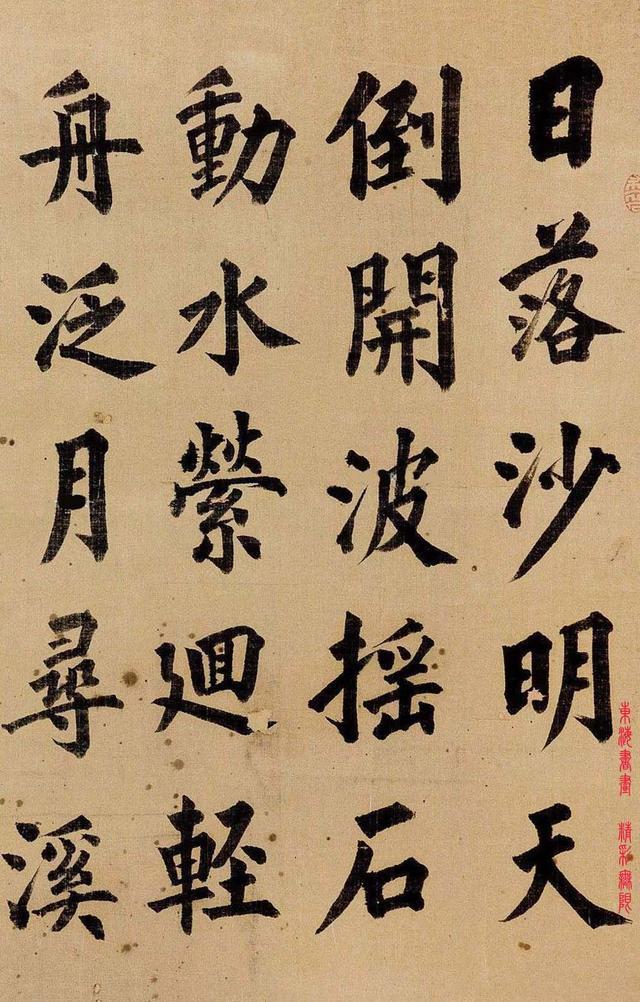 日落沙明天
倒開波摇石
動水縈廻輕
舟泛月尋溪
東海書畫 精彩無限